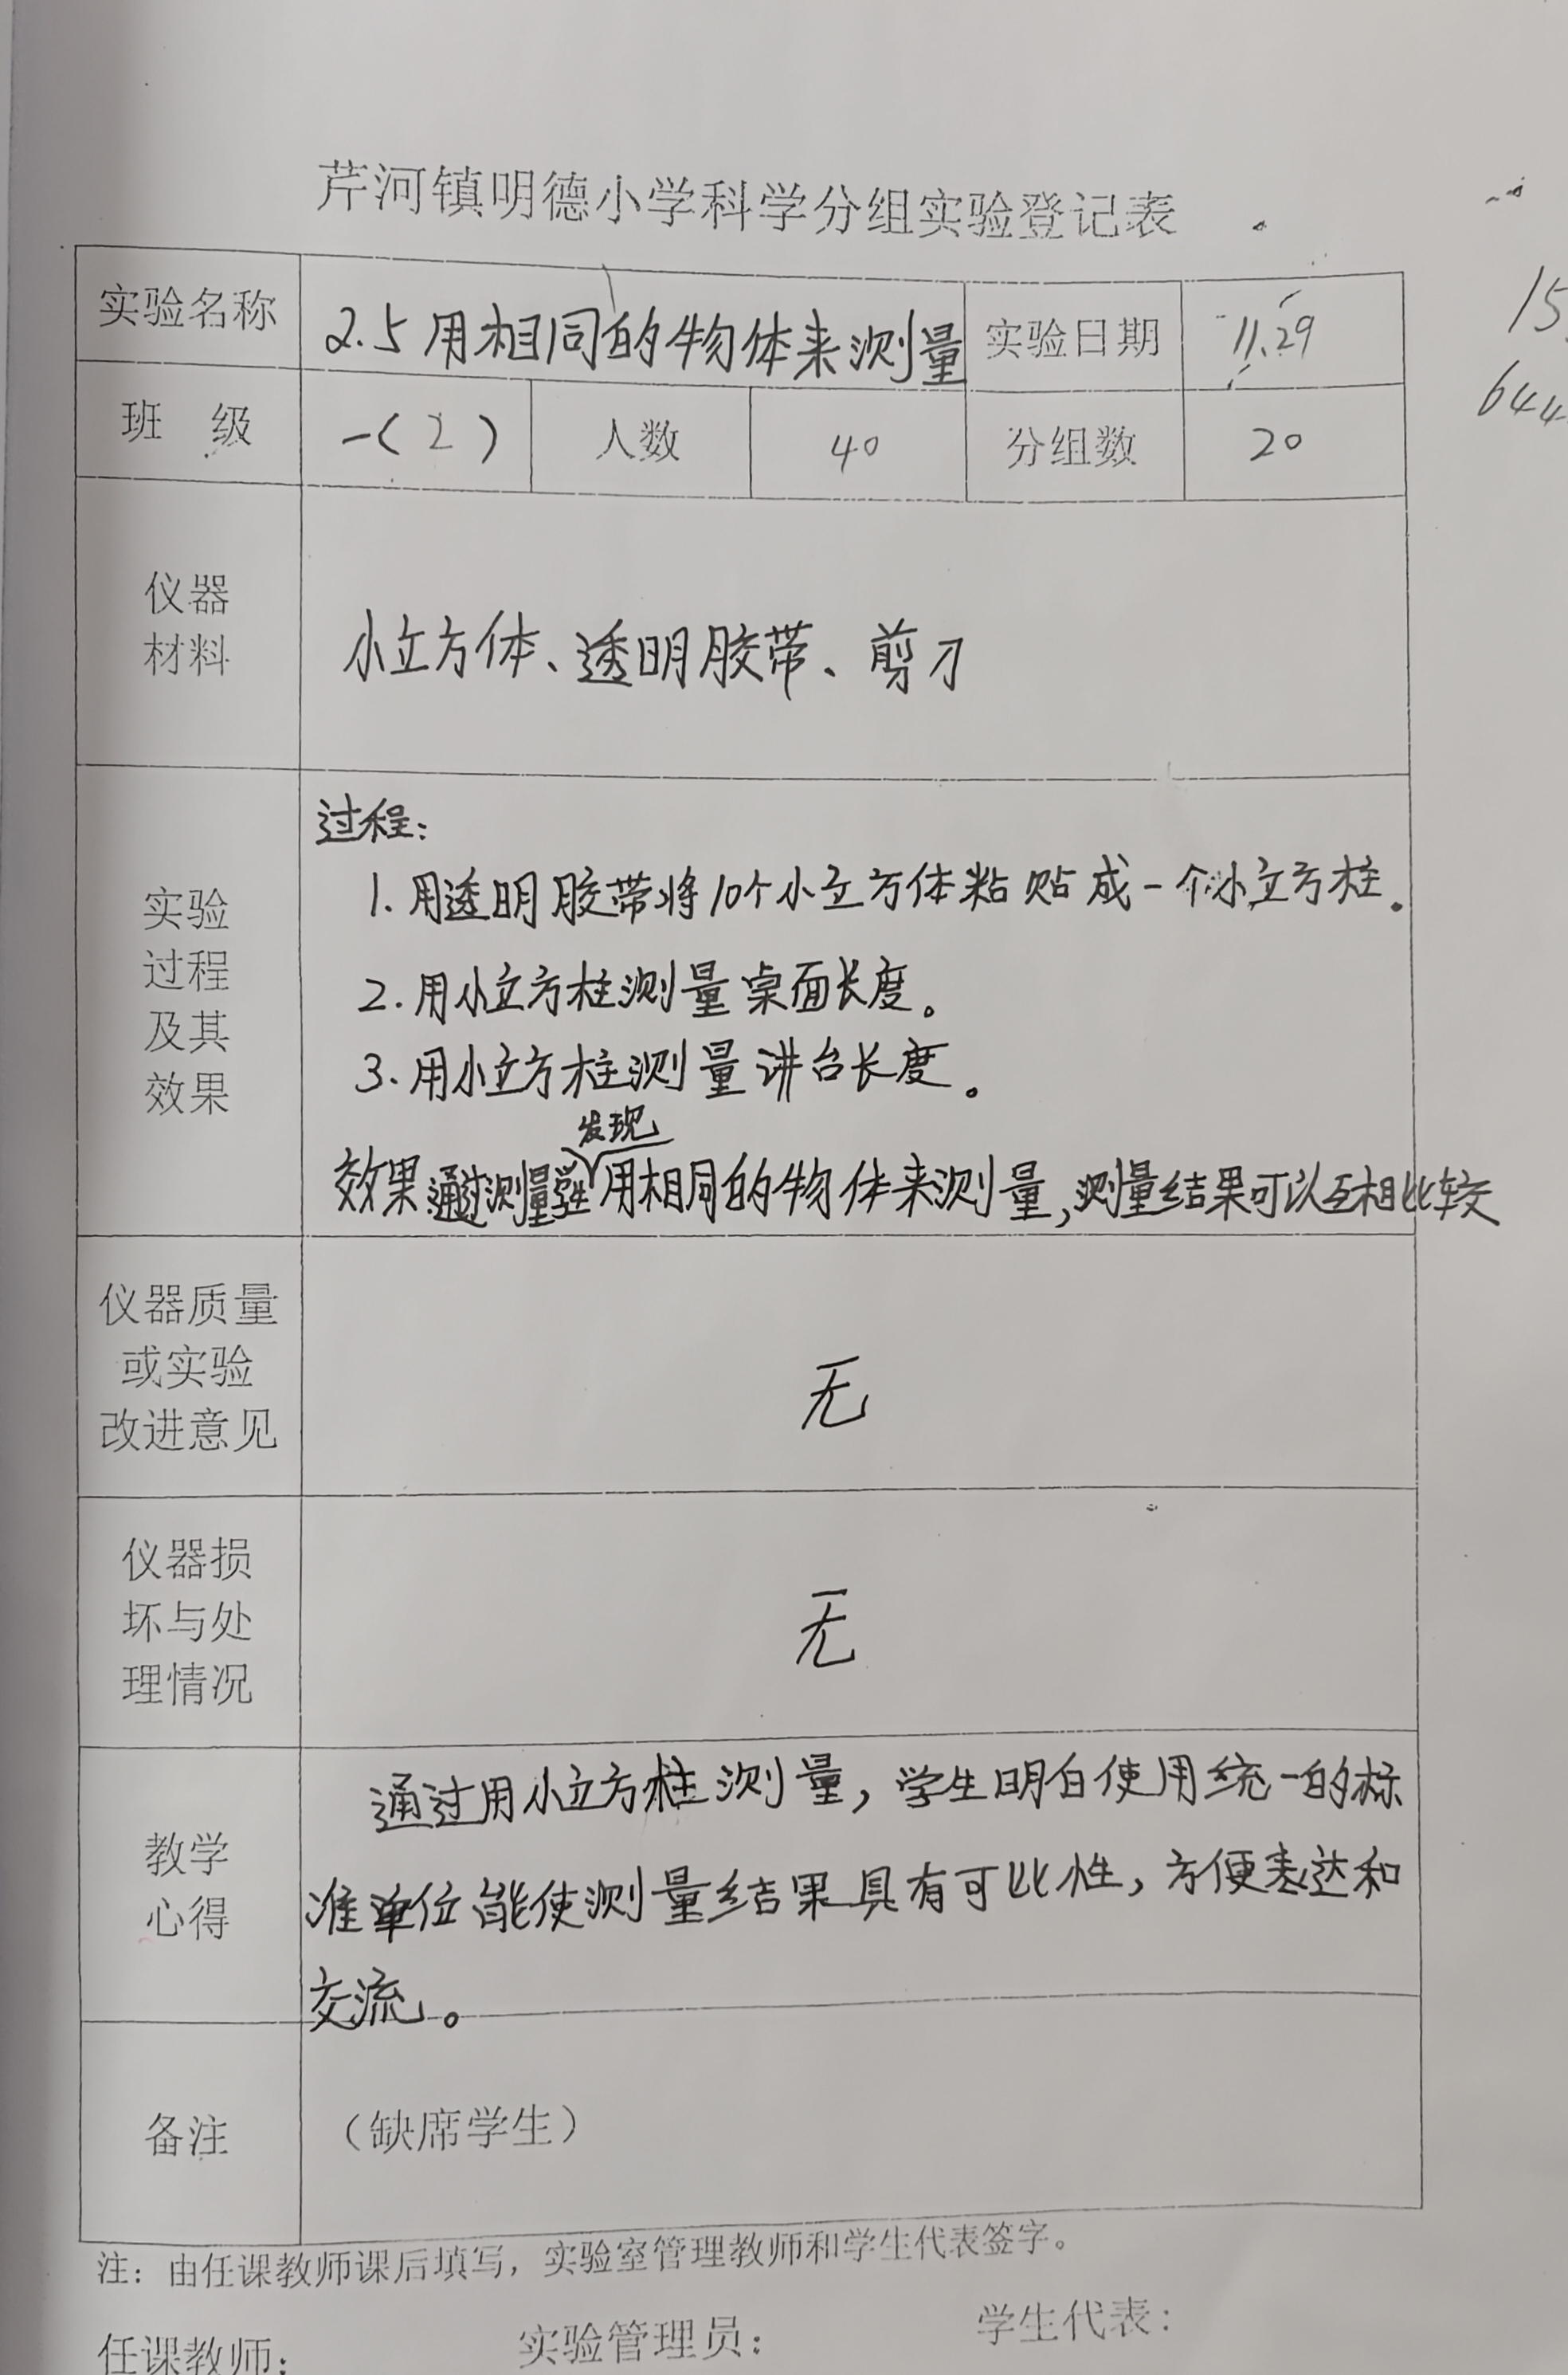 芹河镇明德小学科学分组实验登记表
15
644
实验名称 2.5 用相同的物体来测量 实验日期 11.29
班 级 一(2) 人数 40 分组数 20
仪器
材料
小立方体、透明胶带、剪刀
实验
过程
及其
效果
过程:
1. 用透明胶带将10个小立方体粘贴成一个小立方柱。
2. 用小立方柱测量桌面长度。
3. 用小立方柱测量讲台长度。
发现
效果 通过测量学生用相同的物体来测量,测量结果可以互相比较
仪器质量
或实验
改进意见
无
仪器损
坏与处
理情况
无
教学
心得
通过用小立方柱测量,学生明白使用统一的标
准单位能使测量结果具有可比性,方便表达和
交流。
备注 (缺席学生)
注:由任课教师课后填写,实验室管理教师和学生代表签字。
任课教师: 实验管理员: 学生代表: